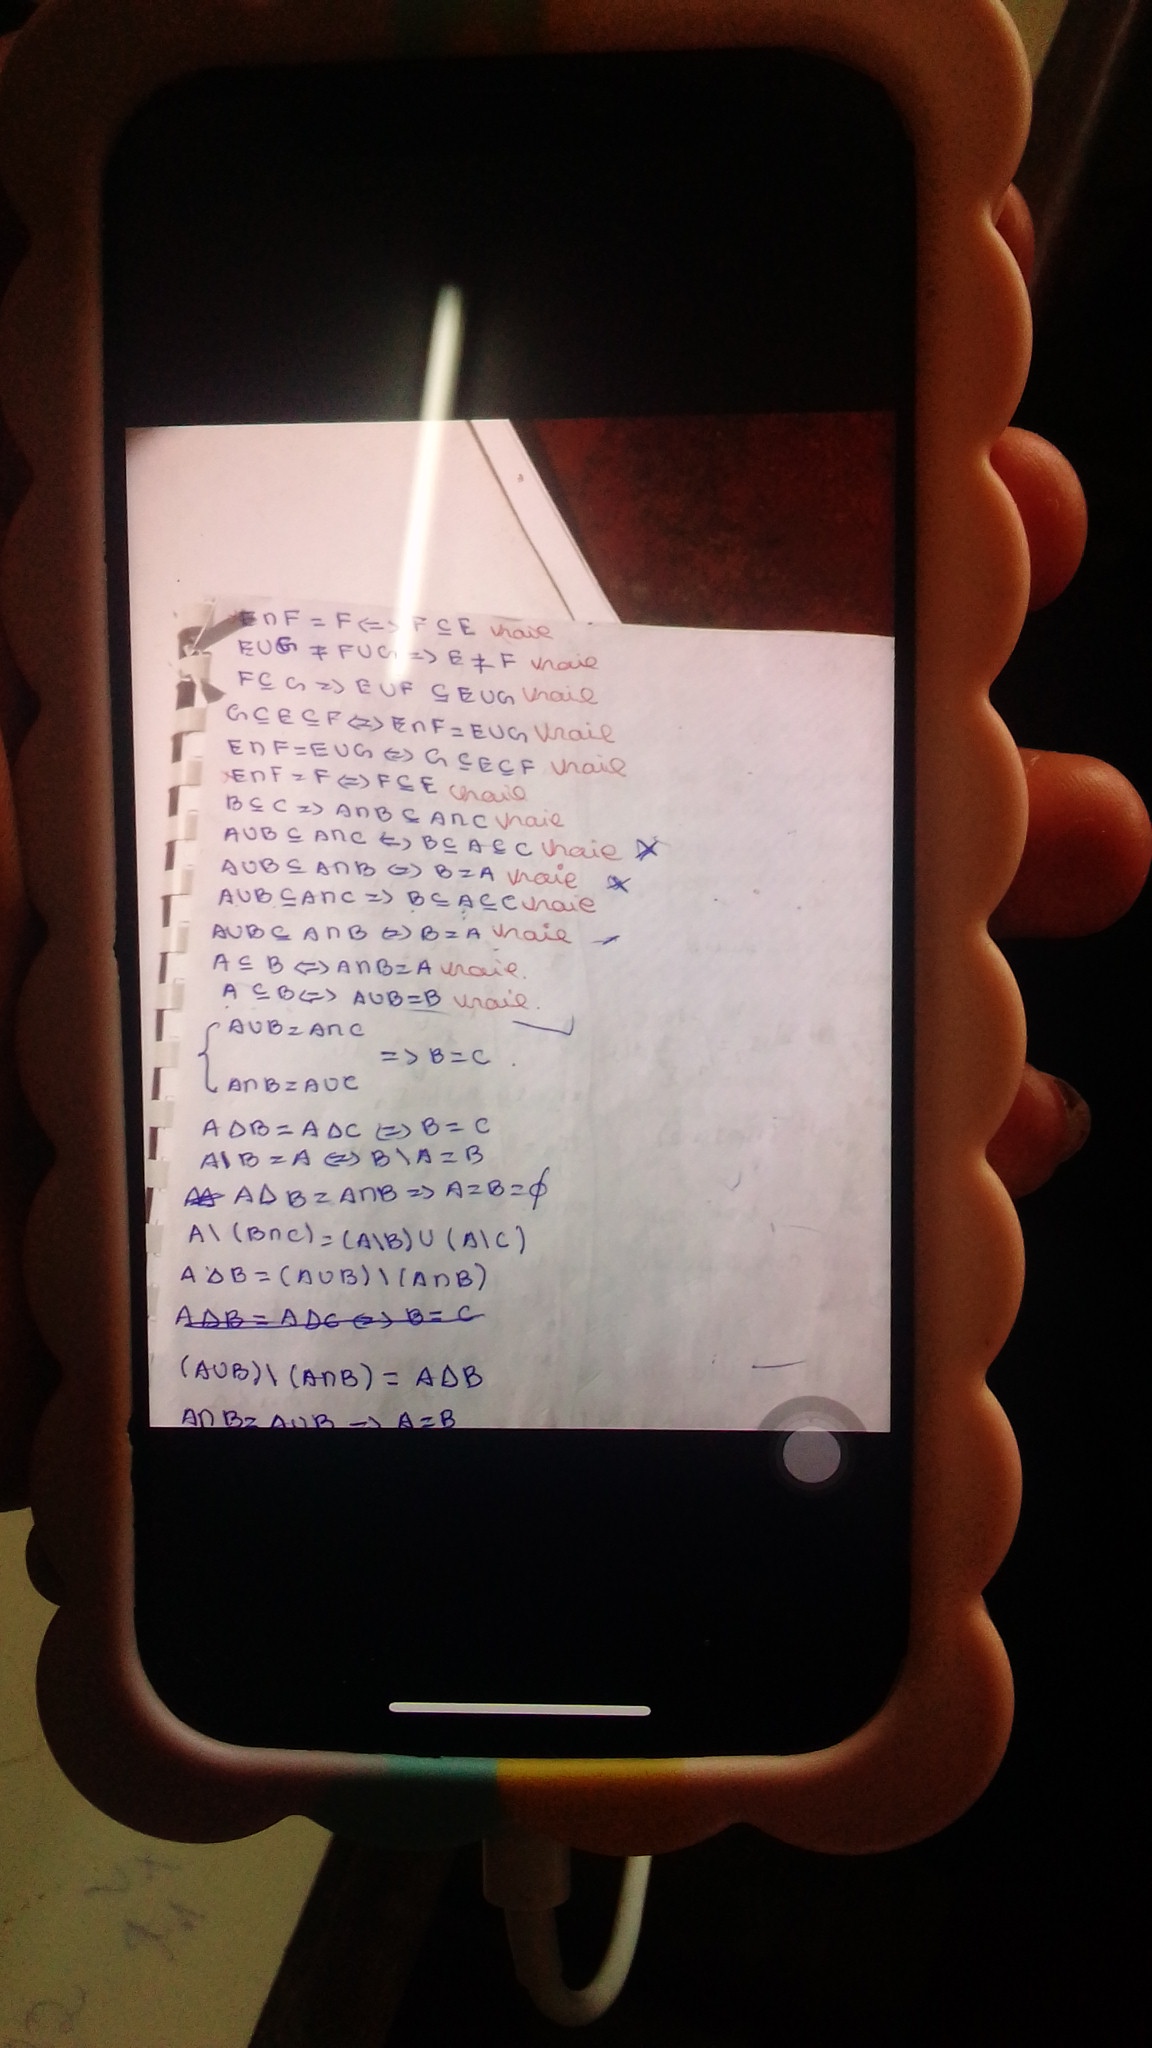 E∩F = F <=> F ⊆ E vraie
E∪G ≠ F∪G => E ≠ F vraie
F ⊆ G => E∪F ⊆ E∪G vraie
G ⊆ E ⊆ F <=> E∩F = E∪G vraie
E∩F = E∪G <=> G ⊆ E ⊆ F vraie
E∩F = F <=> F ⊆ E vraie
B ⊆ C => A∩B ⊆ A∩C vraie
A∪B ⊆ A∩C <=> B ⊆ A ⊆ C vraie
A∪B ⊆ A∩B <=> B = A vraie
A∪B ⊆ A∩C => B ⊆ A ⊆ C vraie
A∪B ⊆ A∩B <=> B = A vraie
A ⊆ B <=> A∩B = A vraie.
A ⊆ B <=> A∪B = B vraie.
A∪B = A∩C
=> B = C .
A∩B = A∪C
A∆B = A∆C <=> B = C
A\B = A <=> B\A = B
A∆B = A∩B => A = B = ϕ
A\(B∩C) = (A\B)∪(A\C)
A∆B = (A∪B)\(A∩B)
A∆B = A∆C <=> B = C
(A∪B)\(A∩B) = A∆B
A∩B = A∪B => A = B